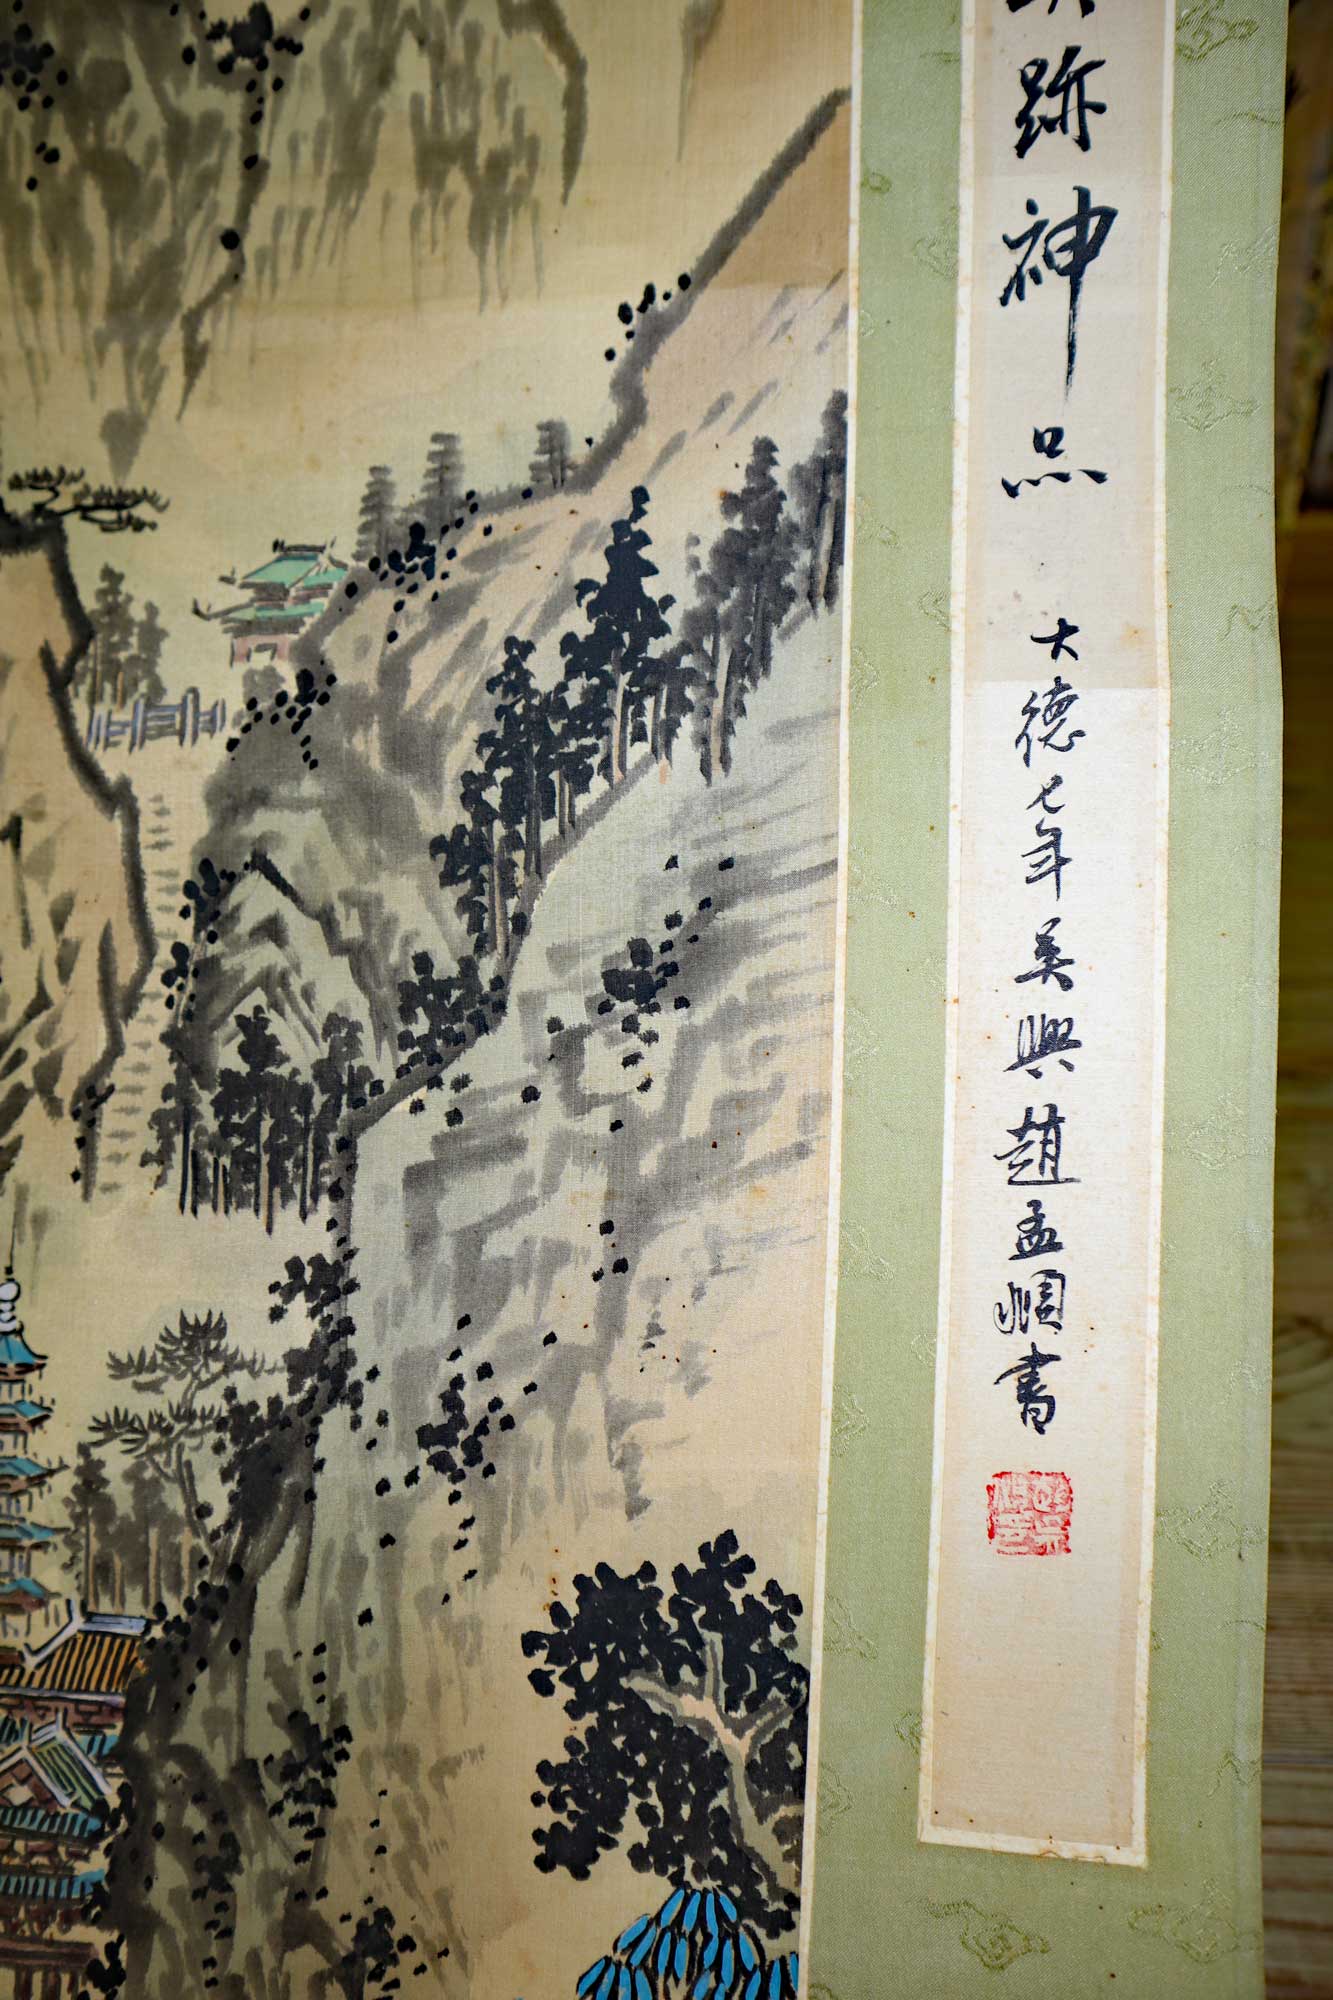 跡神品
大德七年吴興趙孟頫書